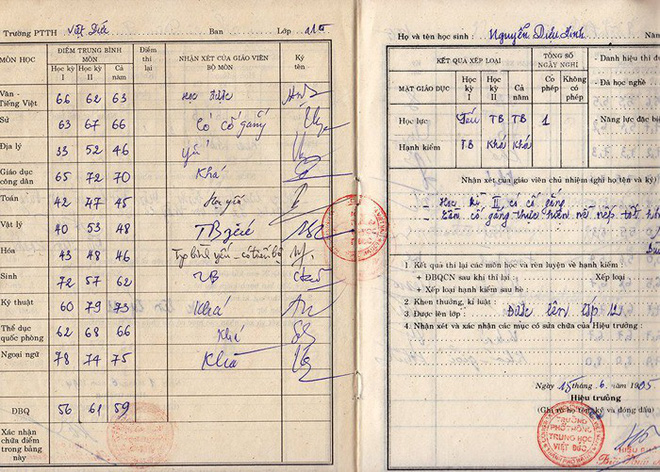 Trường PTTH Việt Đức Ban Lớp 11
MÔN HỌC ĐIỂM TRUNG BÌNH MÔN Điểm thi lại NHẬN XÉT CỦA GIÁO VIÊN BỘ MÔN Ký tên
Học kỳ I Học kỳ II Cả năm
Văn - Tiếng Việt 66 62 63 Học được
Sử 63 67 66 Có cố gắng
Địa lý 33 52 46 yếu
Giáo dục công dân 65 72 70 Khá
Toán 42 47 45 Học yếu
Vật lý 40 53 48 TB yếu
Hóa 43 48 46 có tiến bộ
Sinh 72 57 62 TB
Kỹ thuật 60 79 73 Khá
Thể dục quốc phòng 62 68 66 Khá
Ngoại ngữ 78 74 75 Khá
ĐBQ 56 61 59
Xác nhận chữa điểm trong bảng này
Họ và tên học sinh : Nguyễn Diệu Linh Nă
KẾT QUẢ XẾP LOẠI TỔNG SỐ NGÀY NGHỈ
MẶT GIÁO DỤC Học kỳ I Học kỳ II Cả năm Có phép Không có phép
- Danh hiệu thi đu
- Đã học nghề
- Năng lực đặc biệ
Học lực Yếu TB TB 1
Hạnh kiểm TB Khá Khá
Nhận xét của giáo viên chủ nhiệm (ghi họ tên và ký)
- Học kỳ II có cố gắng
- cố gắng thực hiện nề nếp tốt
1. Kết quả thi lại các môn học và rèn luyện về hạnh kiểm
+ ĐBQCN sau khi thi lại : Xếp loại
+ Xếp loại hạnh kiểm sau hè :
2. Khen thưởng, kỉ luật :
3. Được lên lớp : Được lên lớp 12
4. Nhận xét và xác nhận các mục có sửa chữa của Hiệu trưởng :
Ngày 15 tháng 6 năm 1995
Hiệu trưởng
(Ghi rõ họ tên, ký và đóng dấu)
TRƯỜNG
PHỔ THÔNG
TRUNG HỌC
VIỆT ĐỨC